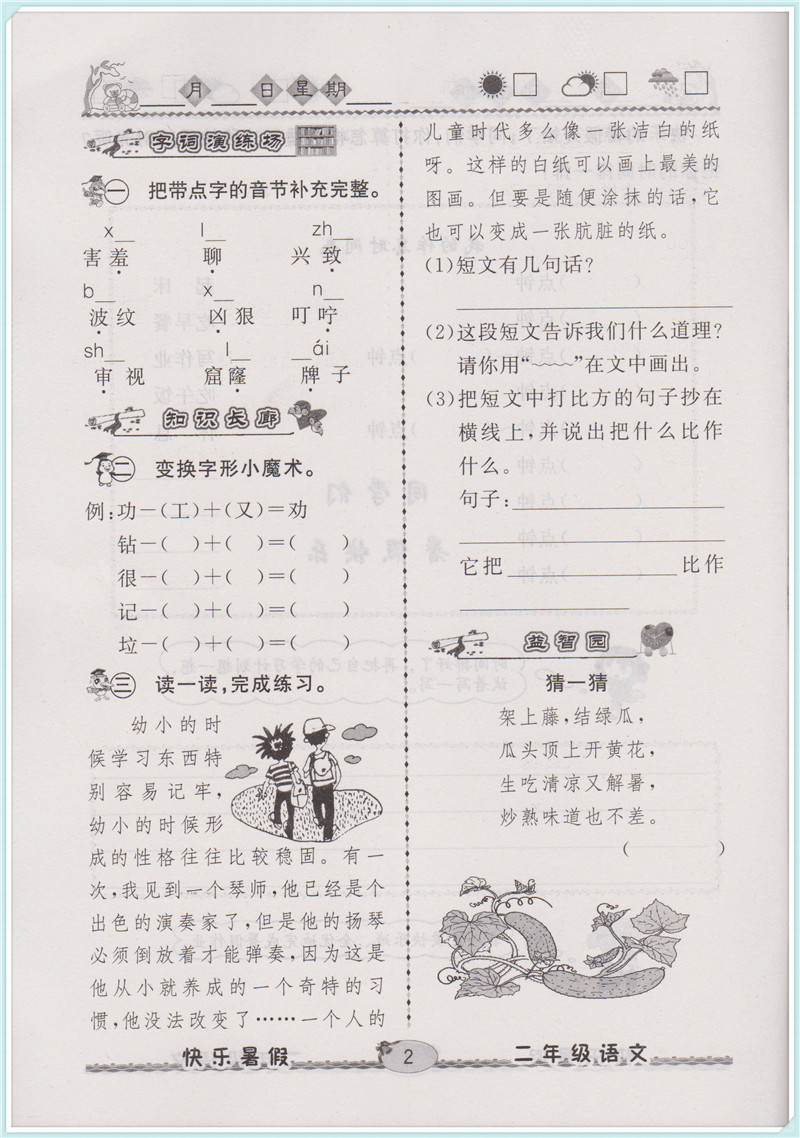 ___月___日星期___
字词演练场
一 把带点字的音节补充完整。
x__ l__ zh__
害羞 聊 兴致
b__ x__ n__
波纹 凶狠 叮咛
sh__ l__ __ái
审视 窟窿 牌子
知识长廊
二 变换字形小魔术。
例:功-(工)+(又)=劝
钻-( )+( )=( )
很-( )+( )=( )
记-( )+( )=( )
垃-( )+( )=( )
三 读一读,完成练习。
幼小的时
候学习东西特
别容易记牢,
幼小的时候形
成的性格往往比较稳固。有一
次,我见到一个琴师,他已经是个
出色的演奏家了,但是他的扬琴
必须倒放着才能弹奏,因为这是
他从小就养成的一个奇特的习
惯,他没法改变了……一个人的
儿童时代多么像一张洁白的纸
呀。这样的白纸可以画上最美的
图画。但要是随便涂抹的话,它
也可以变成一张肮脏的纸。
(1)短文有几句话?
(2)这段短文告诉我们什么道理?
请你用“﹏﹏”在文中画出。
(3)把短文中打比方的句子抄在
横线上,并说出把什么比作
什么。
句子:
它把__________比作
益智园
猜一猜
架上藤,结绿瓜,
瓜头顶上开黄花,
生吃清凉又解暑,
炒熟味道也不差。
( )
快乐暑假 2 二年级语文